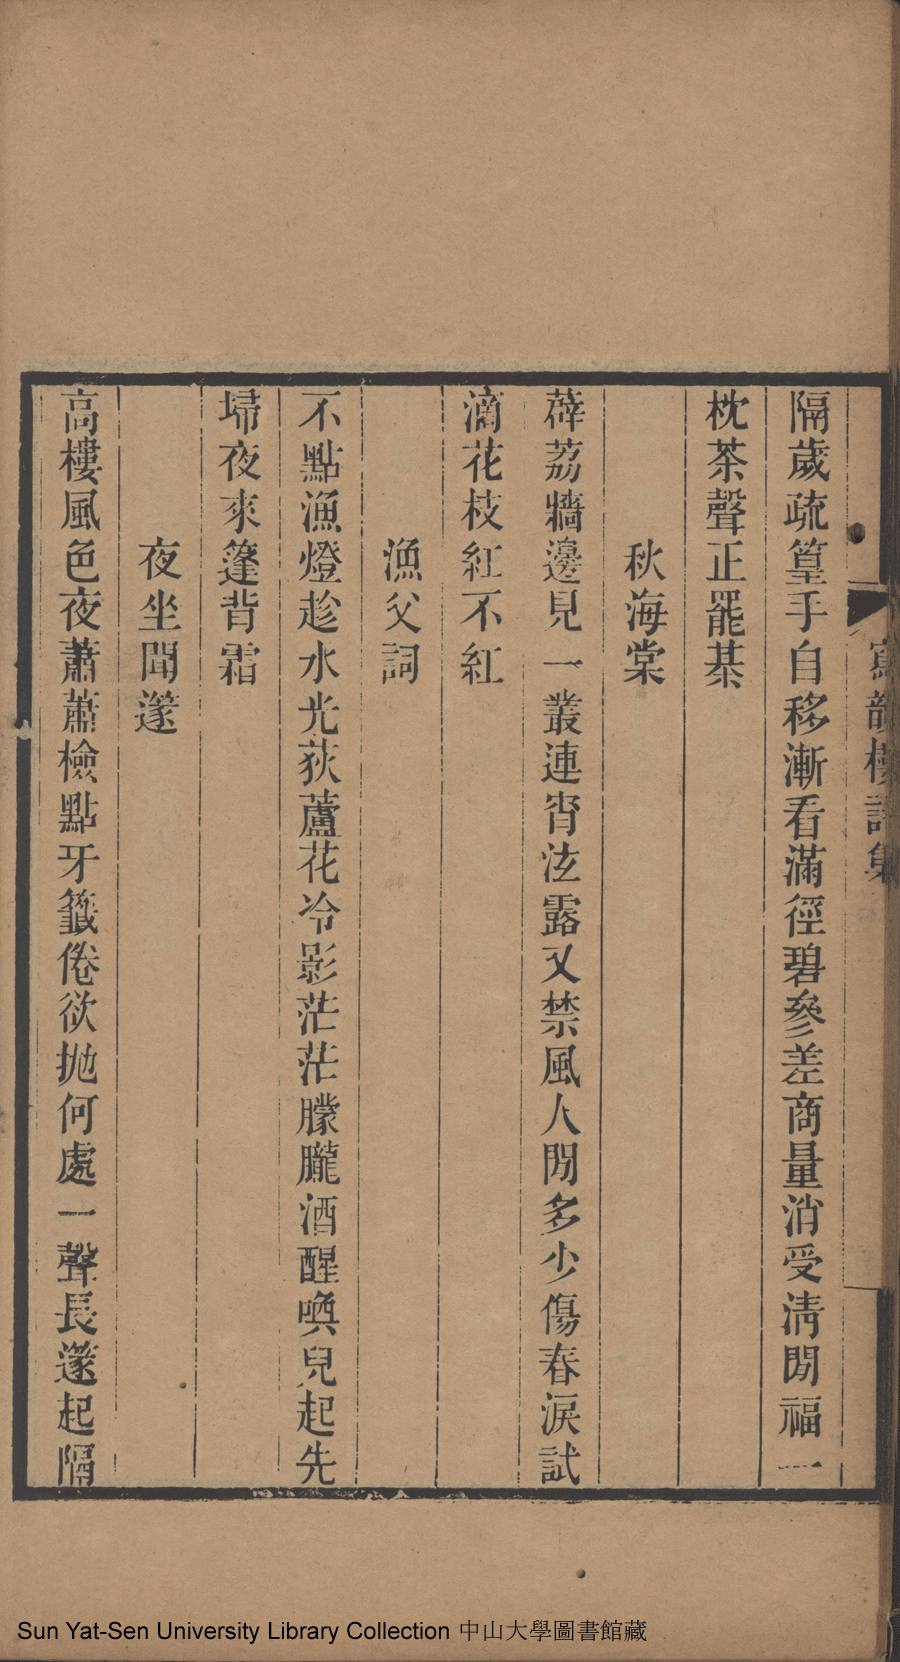 隔歲疏篁手自移漸看滿徑碧參差商量消受清閒福一
枕茶聲正罷棊
秋海棠
薜荔牆邊見一叢連宵泫露又禁風人閒多少傷春淚試
滴花枝紅不紅
漁父詞
不點漁燈趁水光荻蘆花冷影茫茫朦朧酒醒喚兒起先
埽夜來篷背霜
夜坐聞篴
高樓風色夜蕭蕭檢點牙籤倦欲拋何處一聲長篴起隔
Sun Yat-Sen University Library Collection 中山大學圖書館藏